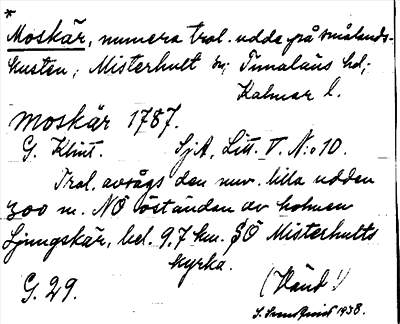 *
Moskär, numera trol. udde på smålands-
kusten; Misterhult sn; Tunaläns hd;
Kalmar l.
moskär 1787.
G. Klint. SjA, Litt. V. N:o 10.
Trol. avsågs den nuv. lilla udden
300 m. NÖ östända av holmen
Ljungskär, bel. 9,7 km. SÖ Misterhults
kyrka.
G. 29. (Vänd!)
1938.